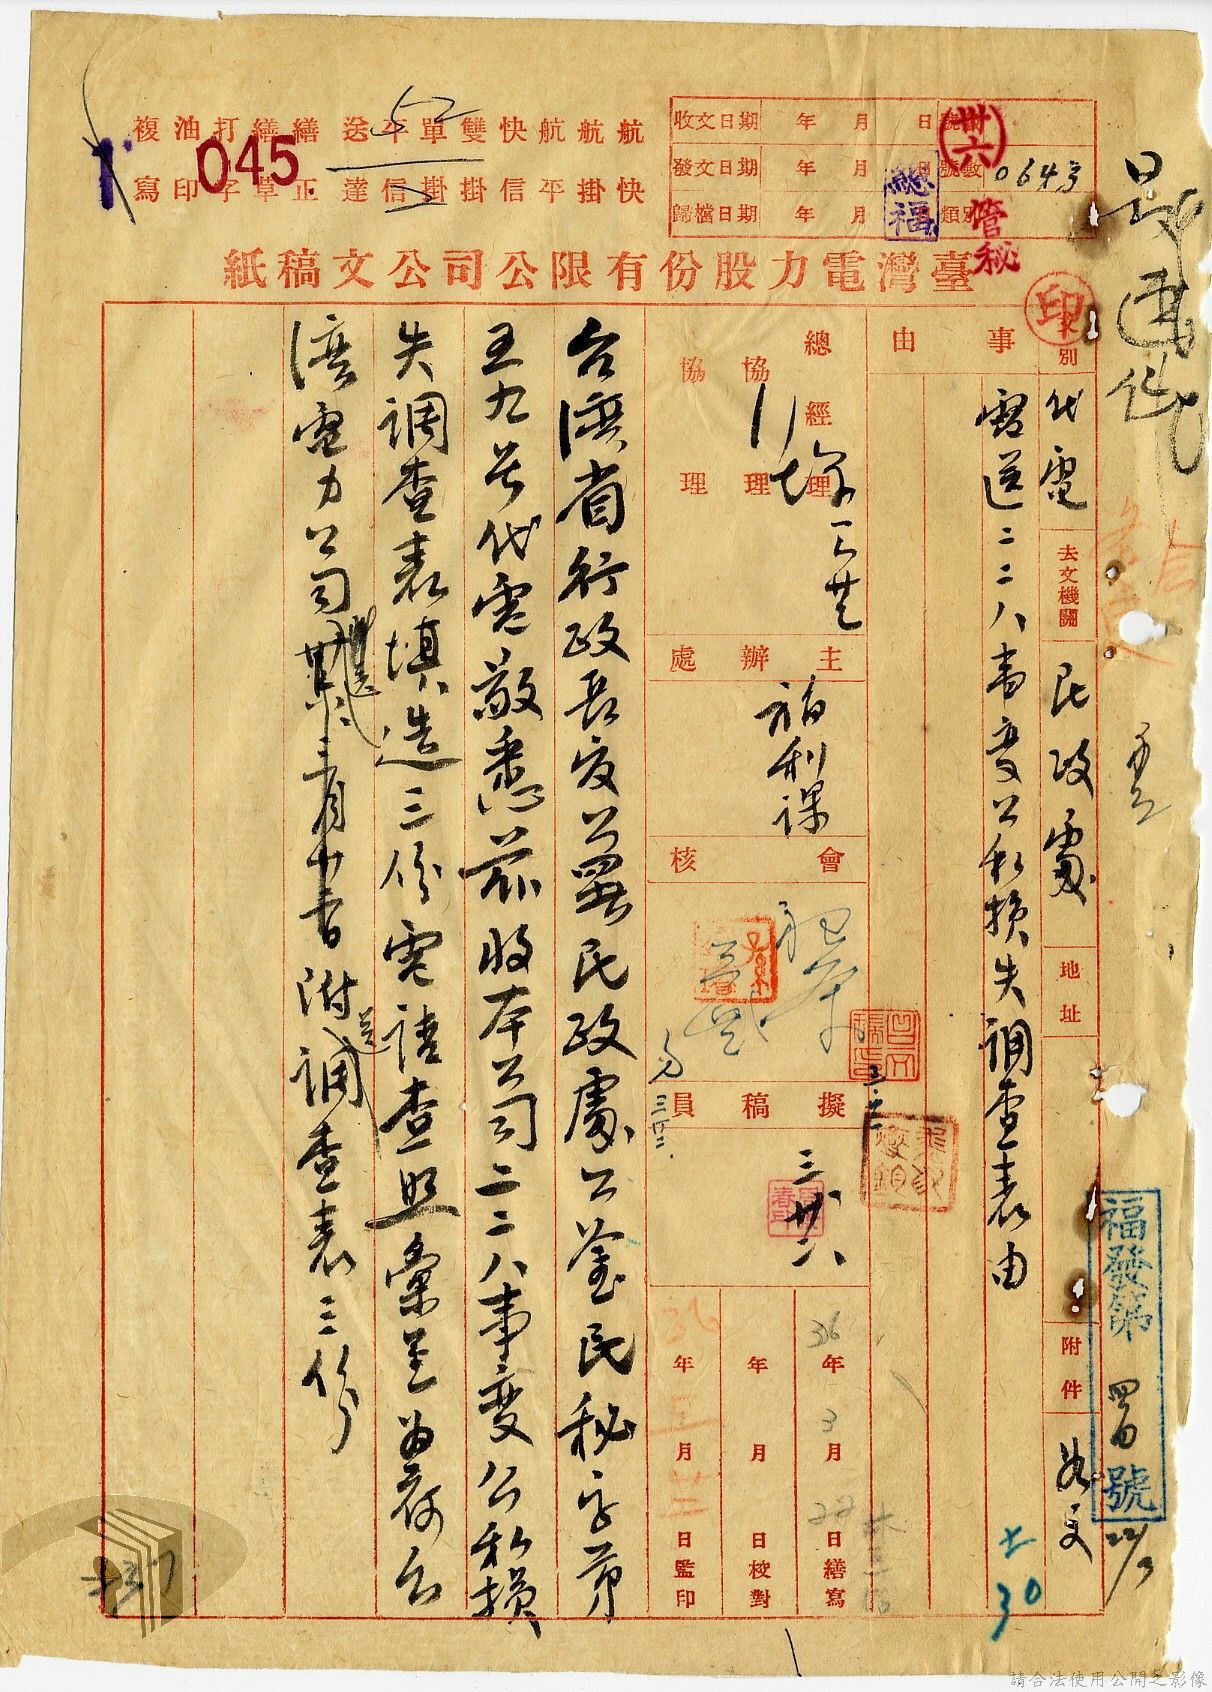 收文日期 年 月 日
發文日期 年 月 日
歸檔日期 年 月
號數
類別
0643
(卅六)
管秘
總福
航快
航掛
航平
快信
雙掛
單掛
平信
送達
繕正
繕草
打字
油印
複寫
045
臺灣電力股份有限公司公文稿紙
印
別
代電
去文機關
民政處
地址
附件
如文
事由
電送二二八事變公私損失調查表由
總經理
協理
協理
主辦處
福利課
會核
擬稿員
36年3月22日繕寫
年 月 日校對
年 月 日監印
台灣省行政長官公署民政處公鑒民秘字第
五九號代電敬悉茲將本公司二二八事變公私損
失調查表填造三份電請查照彙呈為荷台
灣電力公司
三月
附調查表三份
福發第 號
30
請合法使用公開之影像